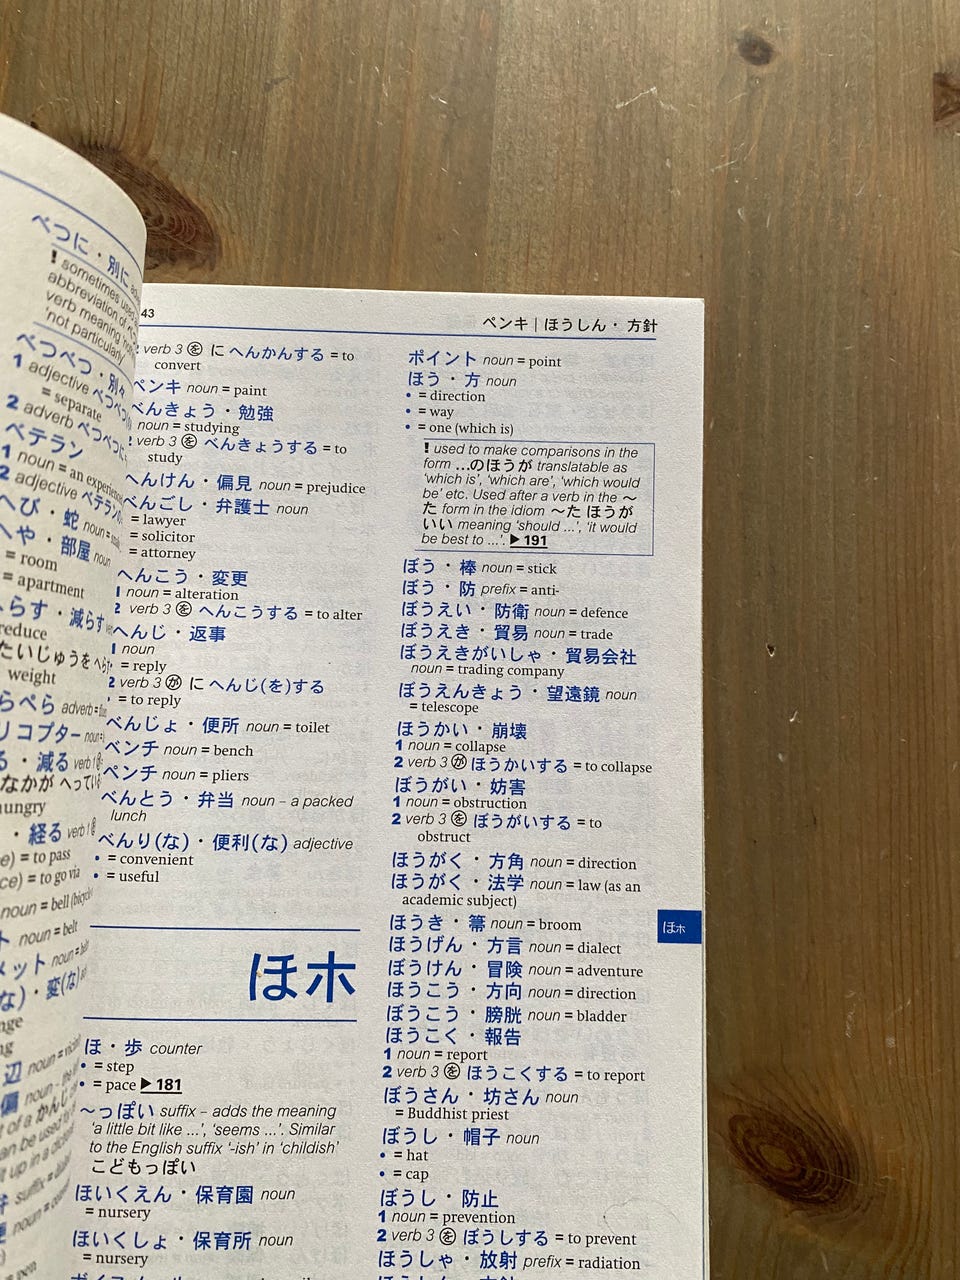 べつに・別に
! sometimes used
abbreviation of
verb meaning
'not particularly
べつべつ・別々
1 adjective べつべつ
= separate
2 adverb べつべつに
ベテラン
1 noun = an experienced
2 adjective ベテランの
へび・蛇 noun =
へや・部屋 noun
= room
= apartment
らす・減らす
reduce
たいじゅうをへら
weight
らぺら adverb =
リコプター noun =
る・減る verb 1
なかが へってい
hungry
・経る verb 1
= to pass
= to go via
noun = bell (bicycle
noun = belt
メット noun =
な)・変(な)
辺 noun =
偏 noun
43
ペンキ | ほうしん・方針
2 verb 3 を に へんかんする = to
convert
ペンキ noun = paint
べんきょう・勉強
noun = studying
2 verb 3 を べんきょうする = to
study
へんけん・偏見 noun = prejudice
べんごし・弁護士 noun
= lawyer
= solicitor
= attorney
へんこう・変更
1 noun = alteration
2 verb 3 を へんこうする = to alter
へんじ・返事
1 noun
• = reply
2 verb 3 が に へんじ(を)する
• = to reply
べんじょ・便所 noun = toilet
ベンチ noun = bench
ペンチ noun = pliers
べんとう・弁当 noun – a packed
lunch
べんり(な)・便利(な) adjective
• = convenient
• = useful
ほホ
ほ・歩 counter
• = step
• = pace ▶181
～っぽい suffix – adds the meaning
'a little bit like ...', 'seems ...'. Similar
to the English suffix '-ish' in 'childish'
こどもっぽい
ほいくえん・保育園 noun
= nursery
ほいくしょ・保育所 noun
= nursery
ポイント noun = point
ほう・方 noun
• = direction
• = way
• = one (which is)
! used to make comparisons in the
form ...のほうが translatable as
'which is', 'which are', 'which would
be' etc. Used after a verb in the ～
た form in the idiom ～た ほうが
いい meaning 'should ...', 'it would
be best to ...'. ▶191
ぼう・棒 noun = stick
ぼう・防 prefix = anti-
ぼうえい・防衛 noun = defence
ぼうえき・貿易 noun = trade
ぼうえきがいしゃ・貿易会社
noun = trading company
ぼうえんきょう・望遠鏡 noun
= telescope
ほうかい・崩壊
1 noun = collapse
2 verb 3 が ほうかいする = to collapse
ぼうがい・妨害
1 noun = obstruction
2 verb 3 を ぼうがいする = to
obstruct
ほうがく・方角 noun = direction
ほうがく・法学 noun = law (as an
academic subject)
ほうき・箒 noun = broom
ほうげん・方言 noun = dialect
ぼうけん・冒険 noun = adventure
ほうこう・方向 noun = direction
ぼうこう・膀胱 noun = bladder
ほうこく・報告
1 noun = report
2 verb 3 を ほうこくする = to report
ぼうさん・坊さん noun
= Buddhist priest
ぼうし・帽子 noun
• = hat
• = cap
ぼうし・防止
1 noun = prevention
2 verb 3 を ぼうしする = to prevent
ほうしゃ・放射 prefix = radiation
ほホ